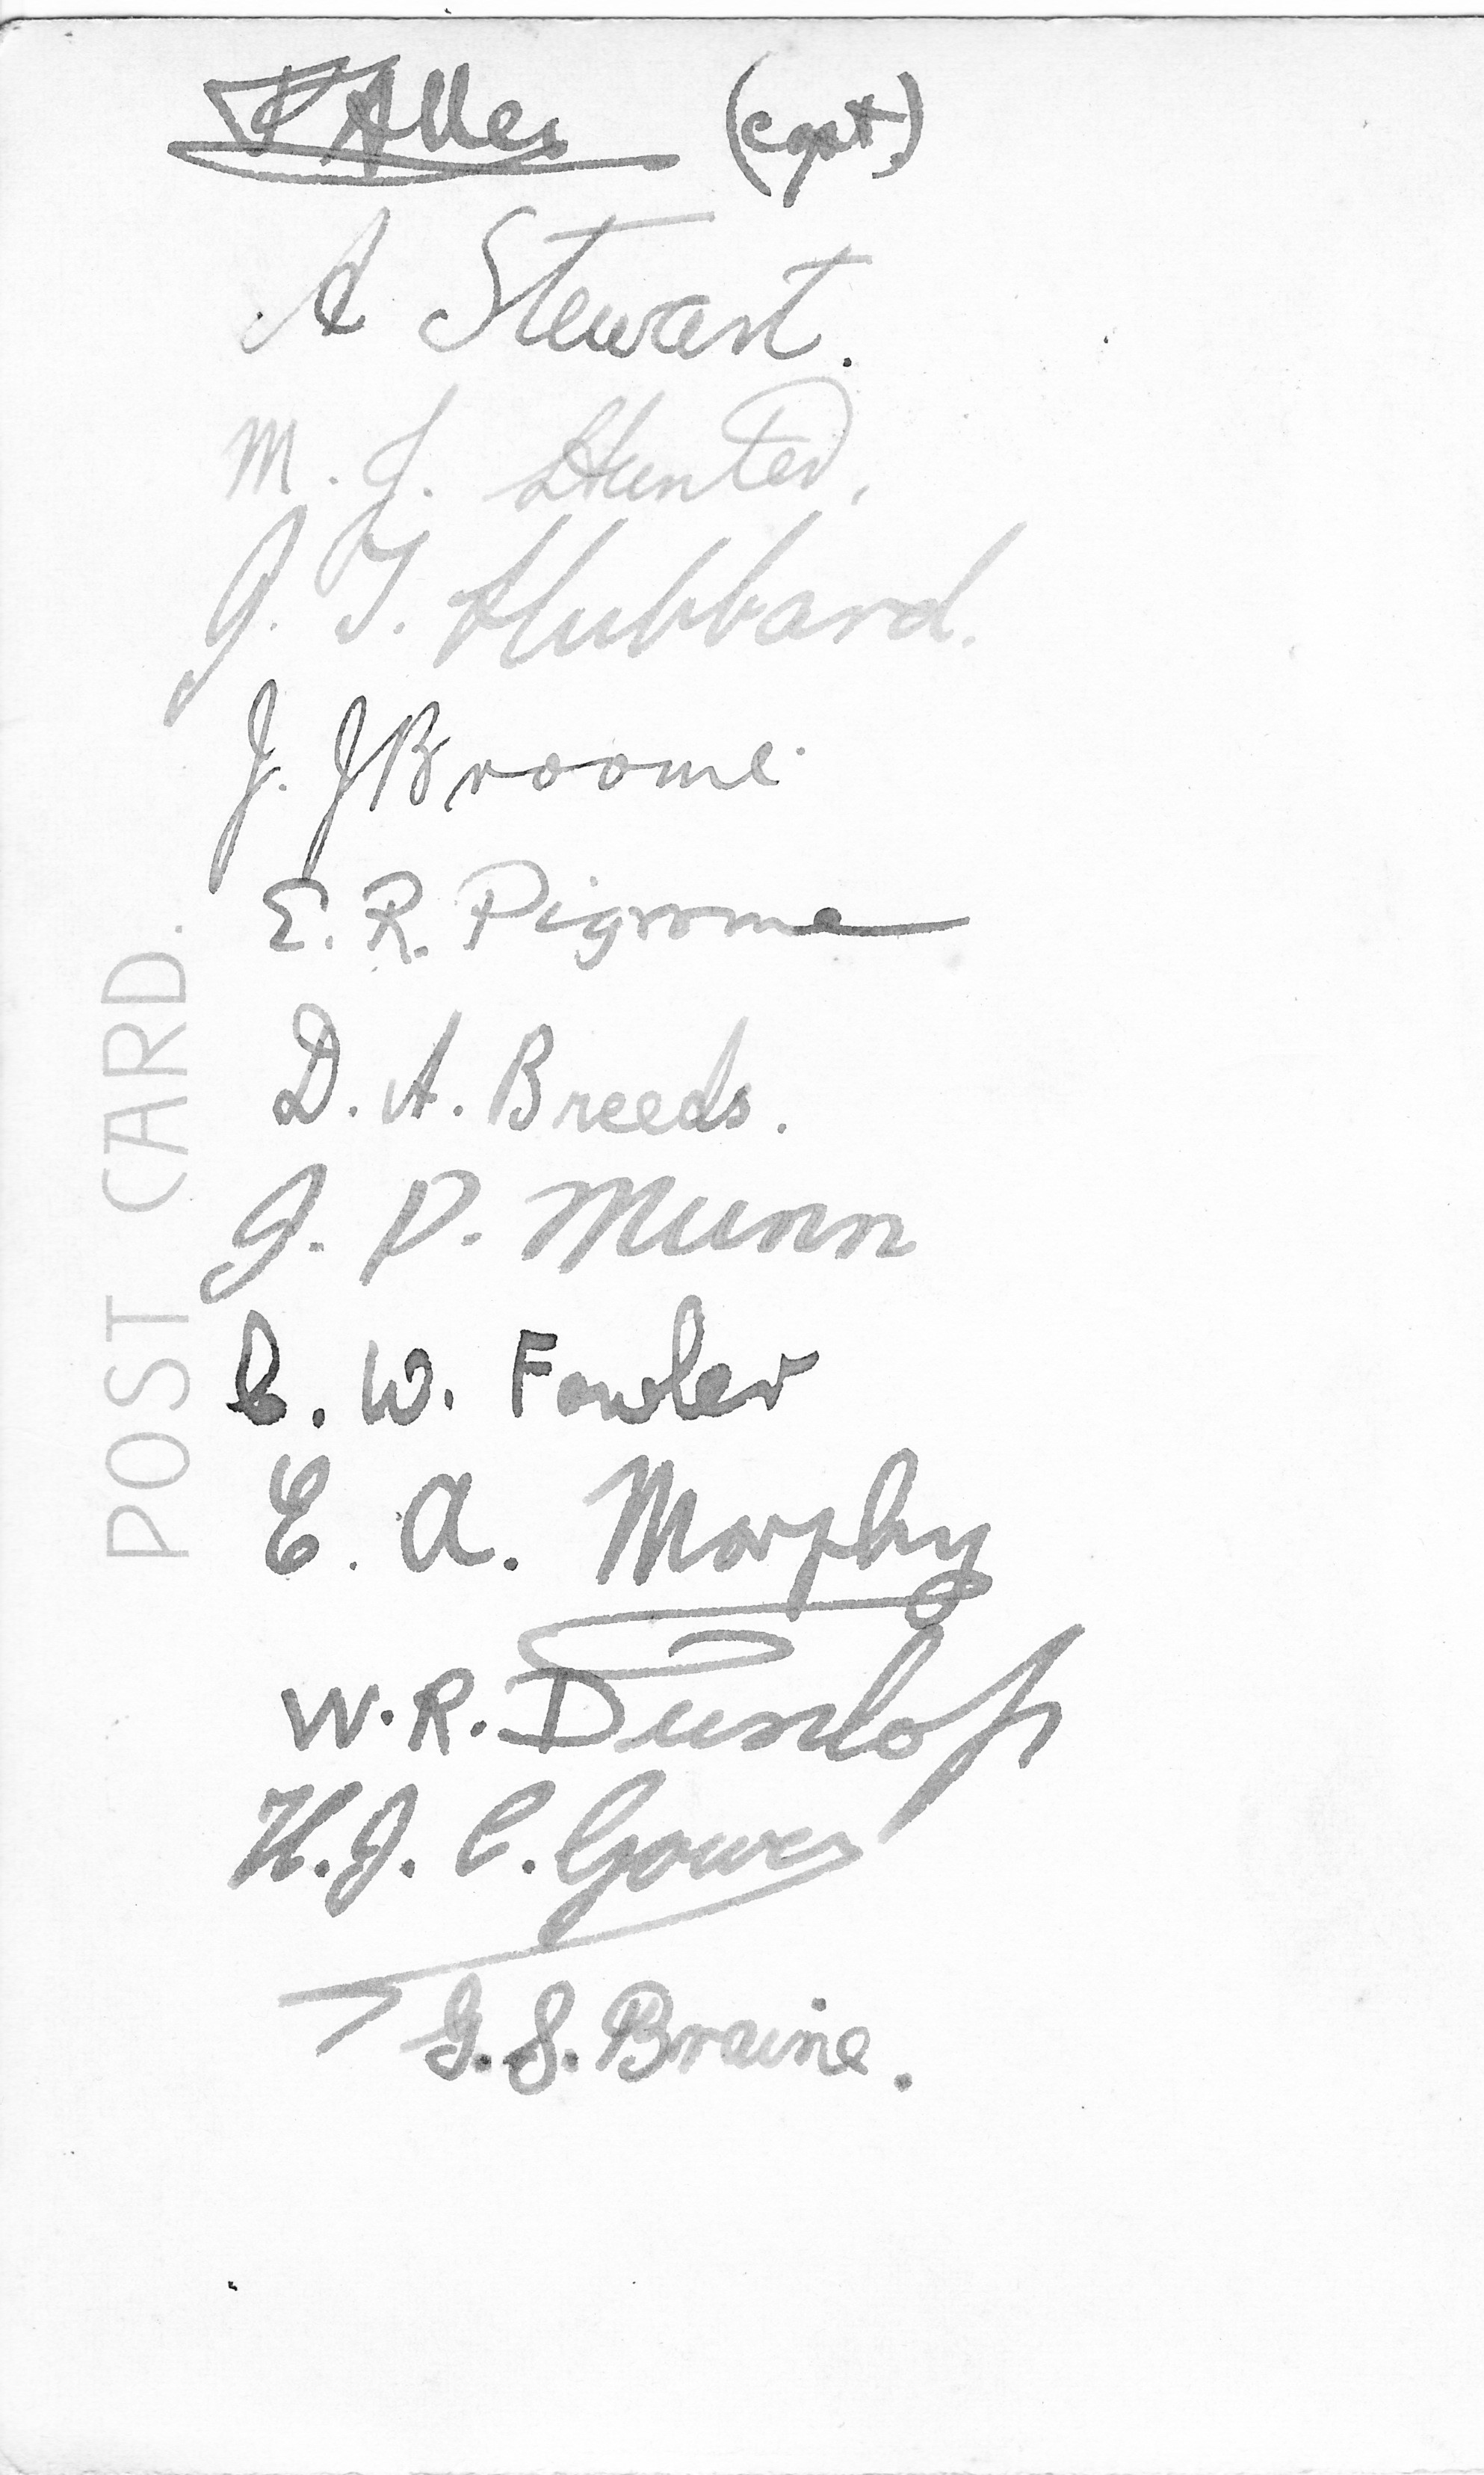 (capt.)
A Stewart.
M. J. Hunter,
J. T. Hubbard.
J. J Broome.
E. R. Pigrome
D. A. Breeds.
J. P. Munn
C. W. Fowler
E. A. Morphy
W. R. Dunlop
H. J. C. Gower
G. S. Braine.
POST CARD.